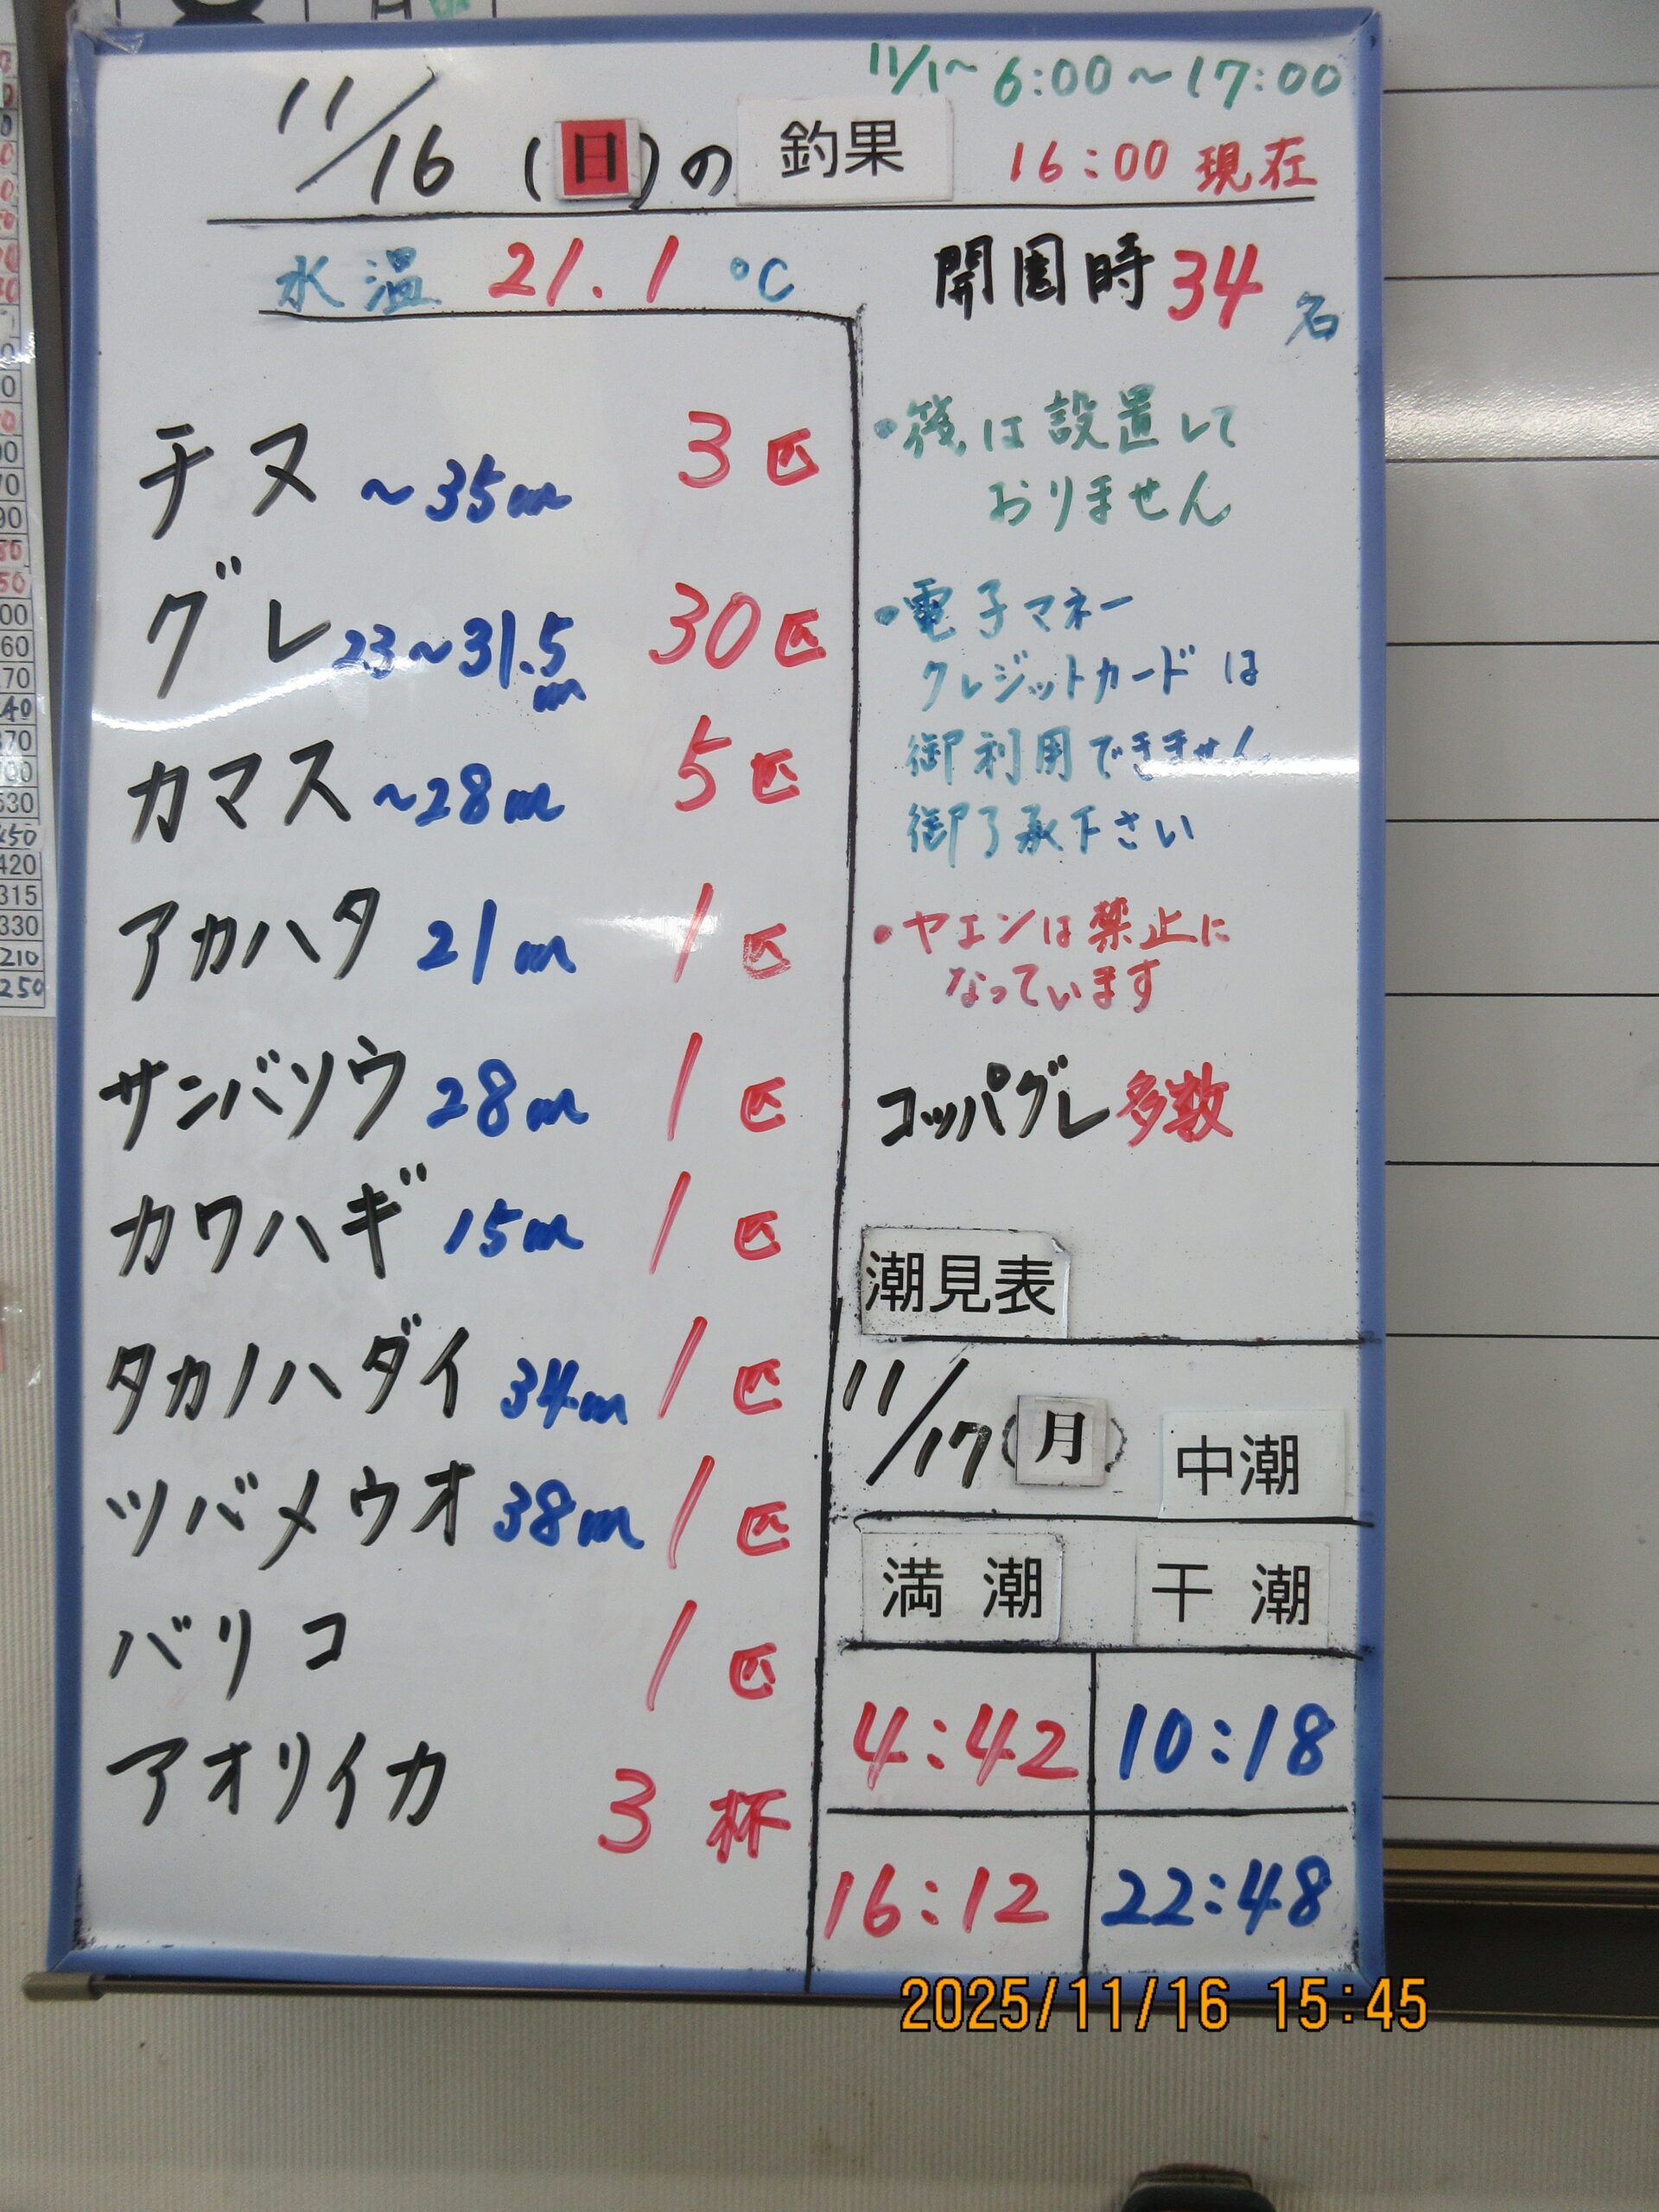 11/1~ 6:00~17:00
11/16 (日)の 釣果 16:00 現在
水温 21.1 ℃
開園時 34名
チヌ ~35cm 3匹
グレ 23~31.5cm 30匹
カマス ~28cm 5匹
アカハタ 21cm 1匹
サンバソウ 28cm 1匹
カワハギ 15cm 1匹
タカノハダイ 34cm 1匹
ツバメウオ 38cm 1匹
バリコ 1匹
アオリイカ 3杯
・筏は設置して
おりません
・電子マネー
クレジットカードは
御利用できません
御了承下さい
・ヤエンは禁止に
なっています
コッパグレ多数
潮見表
11/17(月) 中潮
満潮 干潮
4:42 10:18
16:12 22:48
2025/11/16 15:45